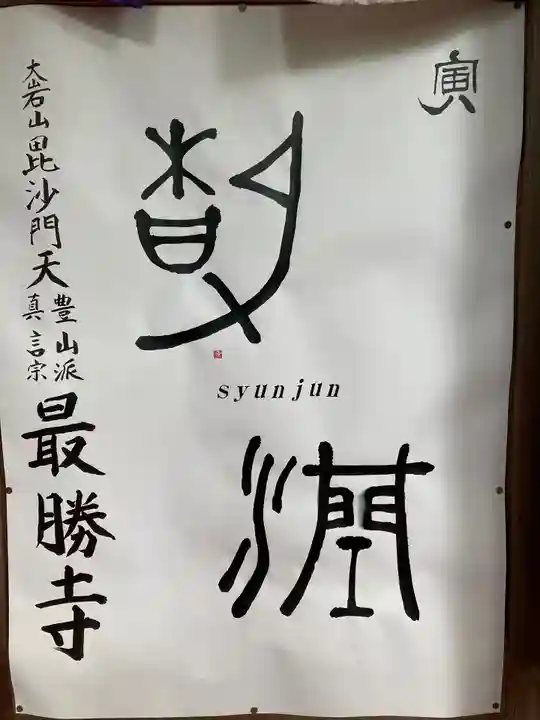 寅
syunjun
潤
大岩山毘沙門天
豊山派
真言宗
最勝寺